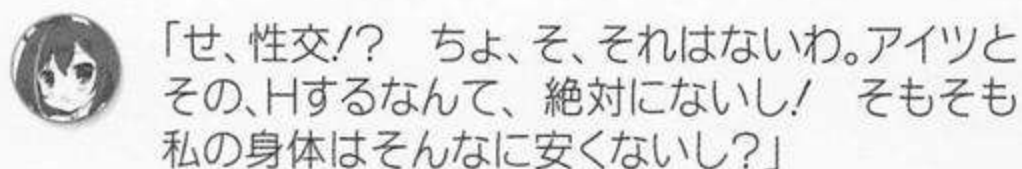 「せ、性交!?　ちょ、そ、それはないわ。アイツと
その、Hするなんて、絶対にないし!　そもそも
私の身体はそんなに安くないし?」